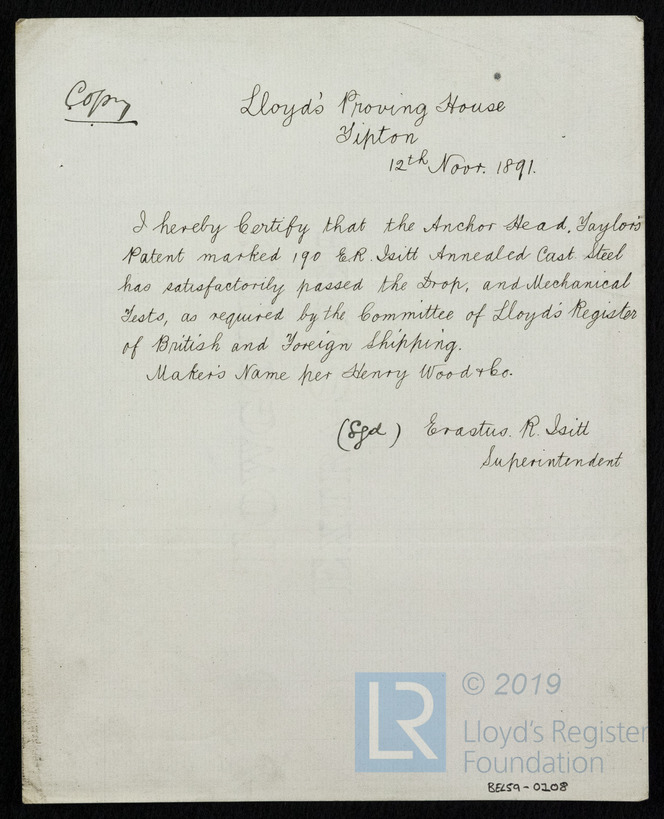 Copy
Lloyd's Proving House
Tipton
12th Novr. 1891.
I hereby Certify that the Anchor Head, Taylor's
Patent marked 190 E.R. Isitt Annealed Cast Steel
has satisfactorily passed the Drop, and Mechanical
Tests, as required by the Committee of Lloyd's Register
of British and Foreign Shipping.
Maker's Name per Henry Wood & Co.
(Sgd) Erastus. R. Isitt
Superintendent
LR
© 2019
Lloyd's Register
Foundation
BEL59-0108